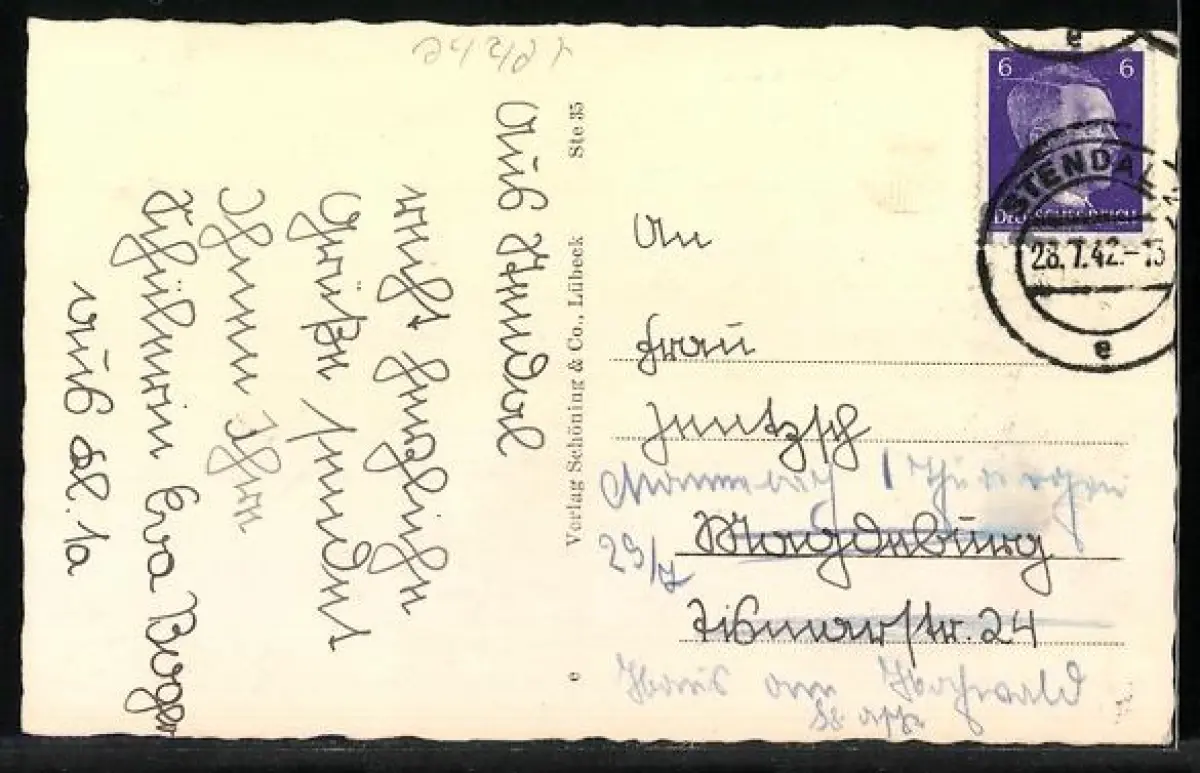 Aus Stendal
recht herzliche
Grüße sendet
Ihnen Ihre
Schülerin Eva Berger
aus Kl. 1a
Verlag Schöning & Co., Lübeck Ste 35
e
6 6
DEUTSCHES REICH
STENDAL
28.7.42.-13
e
e
An
Frau
Jentzsch
Thüringen
29/7
Magdeburg
Bismarstr. 24
Haus am Hochwald